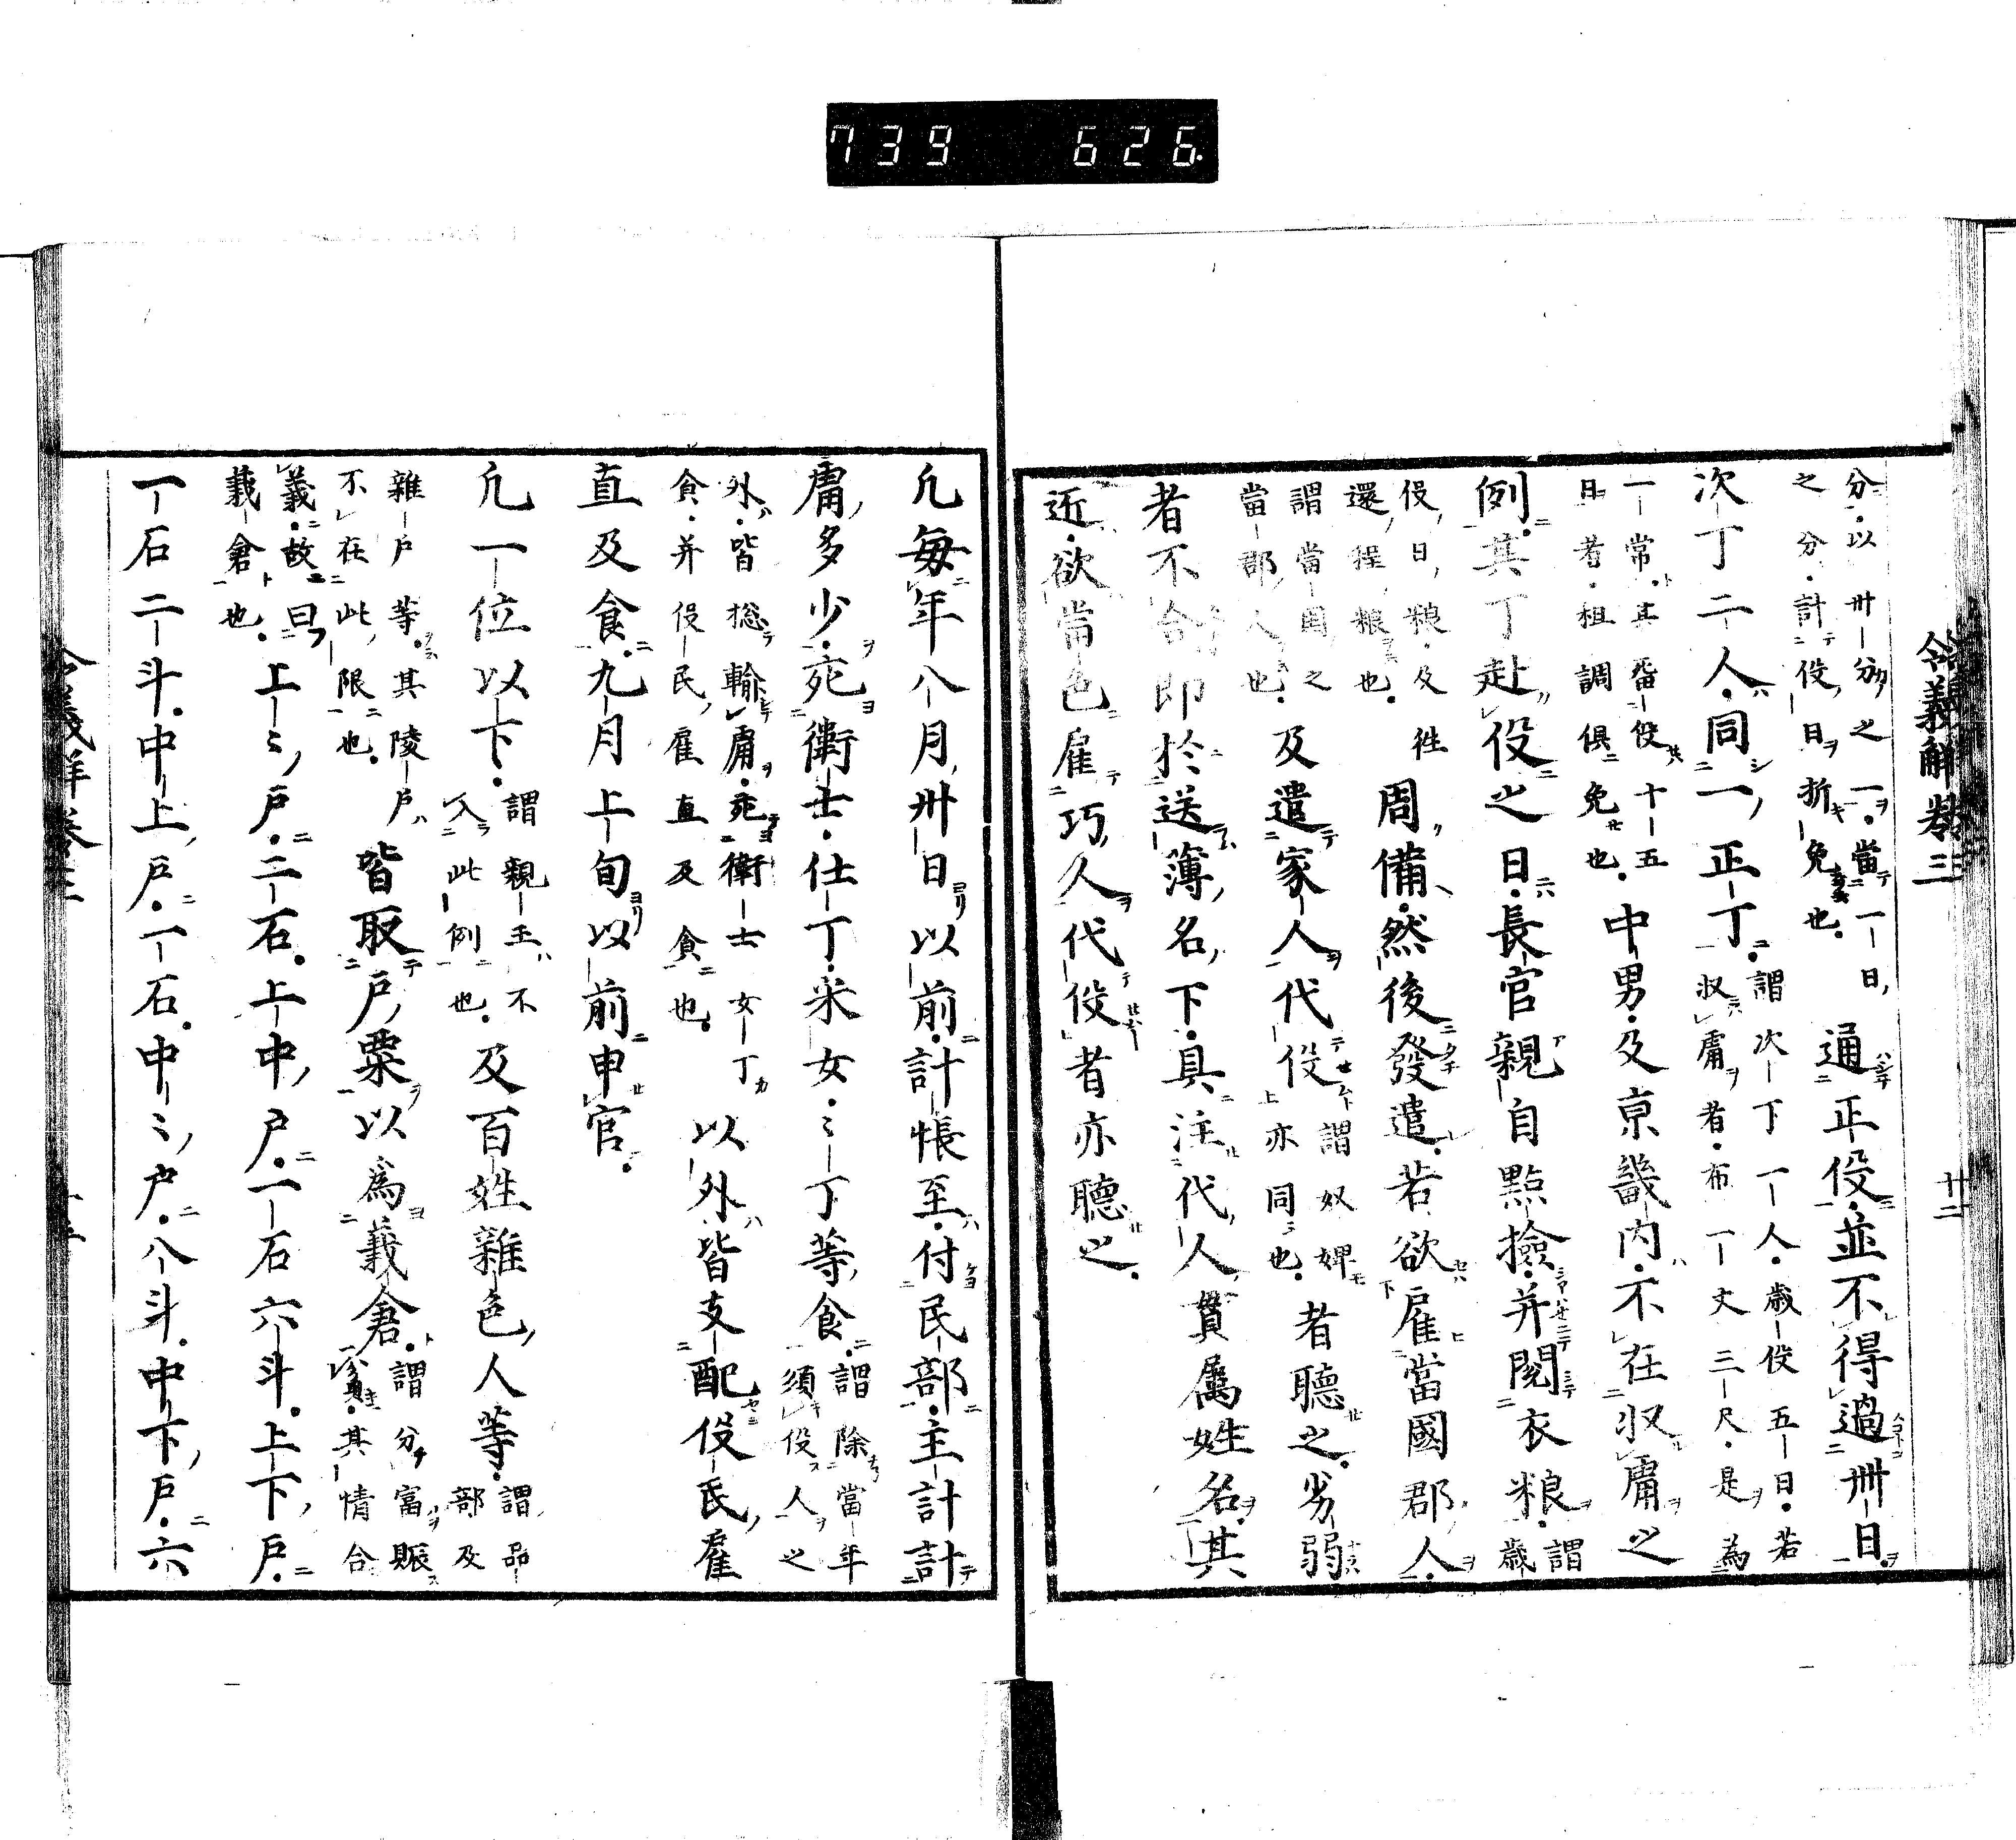 739 626
令義解巻三 廿二
分以卅分之一當一日
之分計役日折免也
通正役並不得過卅日
次丁二人同一正丁
謂次丁一人歳役五日若
收庸者布一丈三尺是為
一常其留役十五
日者租調倶免也
中男及京畿内不在收庸之
例其丁赴役之日長官親自點撿并閲衣粮
謂歳
役日粮及徃
還程粮也
周備然後發遣若欲雇當國郡人
謂當國之
當郡人也
及遣家人代役
謂奴婢
亦同也
者聽之劣弱
者不合即於送簿名下具注代人貫属姓名其
近欲當色雇巧人代役者亦聽之
凢毎年八月卅日以前計帳至付民部主計計
庸多少宛衛士仕丁采女〻丁等食
謂除當年
須役人之
外皆惣輸庸宛衛士女丁
食并役民雇直及食也
以外皆支配役民雇
直及食九月上旬以前申官
凢一位以下
謂親王不
入此例也
及百姓雜色人等
謂品
部及
雜戸等其陵戸
不在此限也
皆取戸粟以為義倉
謂分富賑
貧其情合
義故曰
義倉也
上〻戸二石上中戸一石六斗上下戸
一石二斗中上戸一石中〻戸八斗中下戸六